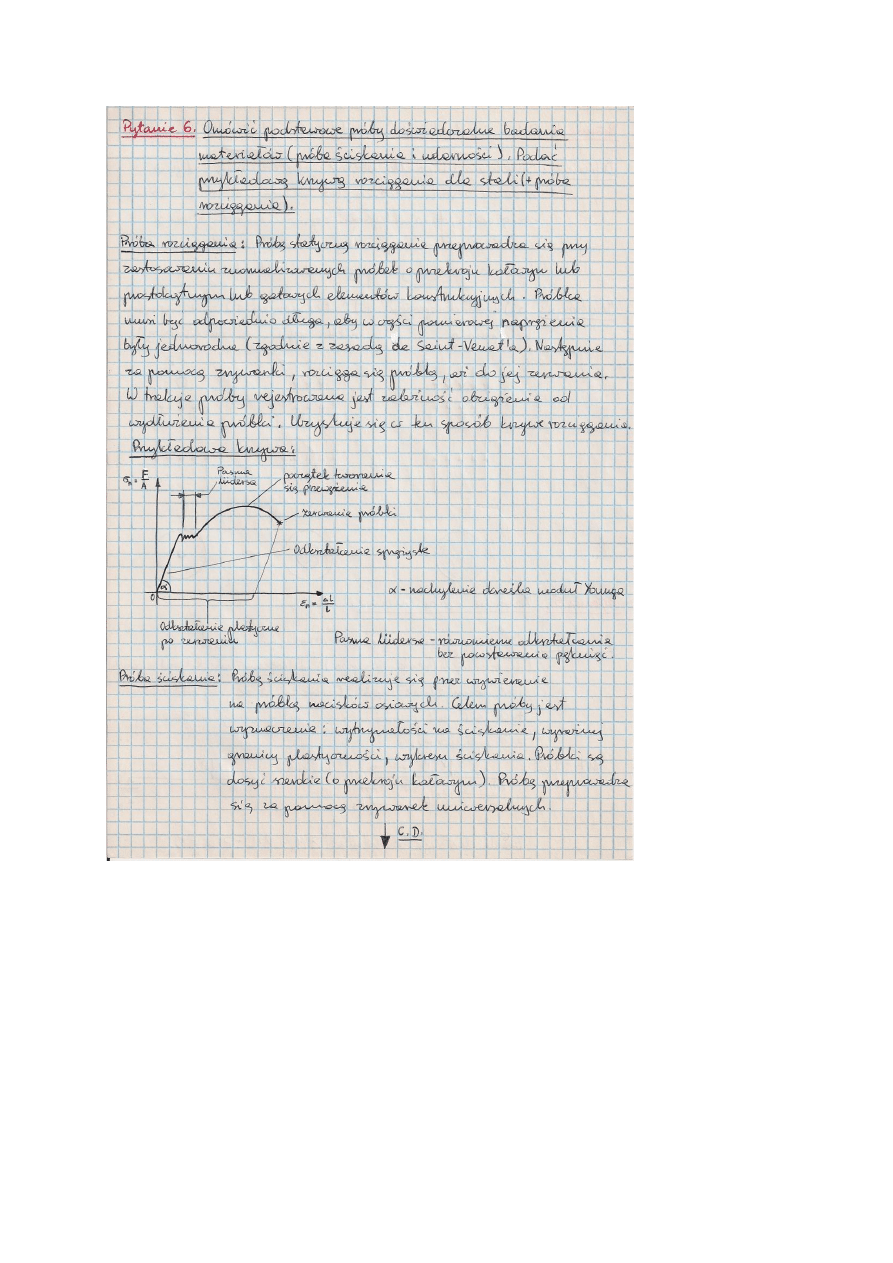 Pytanie 6. Omówić podstawowe próby doświadczalne badania
materiałów (próba ściskania i udarności). Podać
przykładową krzywą rozciągania dla stali (+ próba
rozciągania).
Próba rozciągania: Próbę statyczną rozciągania przeprowadza się przy
zastosowaniu znormalizowanych próbek o przekroju kołowym lub
prostokątnym lub gotowych elementów konstrukcyjnych. Próbka
musi być odpowiednio długa, aby w części pomiarowej naprężenia
były jednorodne (zgodnie z zasadą de Saint-Venat'a). Następnie
za pomocą zrywarki, rozciąga się próbkę, aż do jej zerwania.
W trakcje próby rejestrowana jest zależność obciążenia od
wydłużenia próbki. Uzyskuje się w ten sposób krzywe rozciągania.
Przykładowa krzywa:
σn = F/A
Pasma
Lüdersa
początek tworzenia
się przewężenia
zerwanie próbki
Odkształcenie sprężyste
α
0
εn = ΔL/L
α - nachylenie określa moduł Younga
Odkształcenie plastyczne
po zerwaniu
Pasma Lüdersa - równomierne odkształcania
bez powstawania pęknięć.
Próba ściskania: Próbę ściskania realizuje się przez wywieranie
na próbkę nacisków osiowych. Celem próby jest
wyznaczenie: wytrzymałości na ściskanie, wyraźnej
granicy plastyczności, wykresu ściskania. Próbki są
dosyć szerokie (o przekroju kołowym). Próbę przeprowadza
się za pomocą zrywarek uniwersalnych.
C.D.